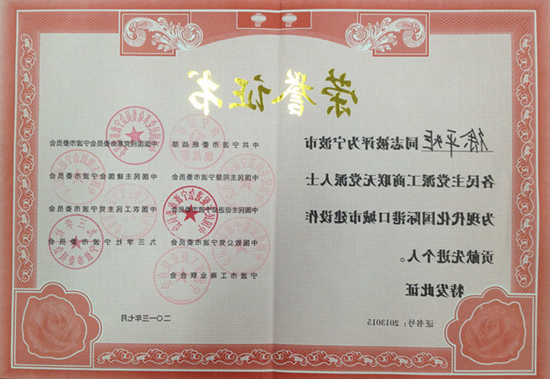 荣誉证书
徐平 同志被评为宁波市
各民主党派工商联无党派人士
为现代化国际港口城市建设作
贡献先进个人。
特发此证
证书号：2013015
中共宁波市委统战部 中国国民党革命委员会宁波市委员会
中国民主同盟宁波市委员会 中国民主建国会宁波市委员会
中国民主促进会宁波市委员会 中国农工民主党宁波市委员会
中国致公党宁波市委员会 九三学社宁波市委员会
宁波市工商业联合会
二〇一三年七月